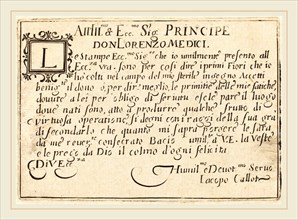 All Ill.mo & Ecc.mo Sig. PRINCIPE
DON LORENZO MEDICI.
LE Stampe Ecc.mo Sig.re che io umilmente presento all
Ecc.za vra. sono per cosi dire i primi Fiori che io
ho colti nel campo del mio sterile ingegno Accetti
benig.te il dono, o per dir meglio, le primitie delle mie fatiche,
dovute a lei per obligo di servitu e se le pare il luogo
dove nati sono, atto a produrre qualche frutto di
virtuosa operatione si degni con i raggi della sua gra
di secondarlo che quanto mi sapra porgere le sara
da me rever.te consecrato Bacio umil.te a V.E. la Veste
e le prego da Dio il colmo d'ogni felicità
Di V. Ecc.za
Humil.mo e Devot.mo Seruo
Iacopo Callot